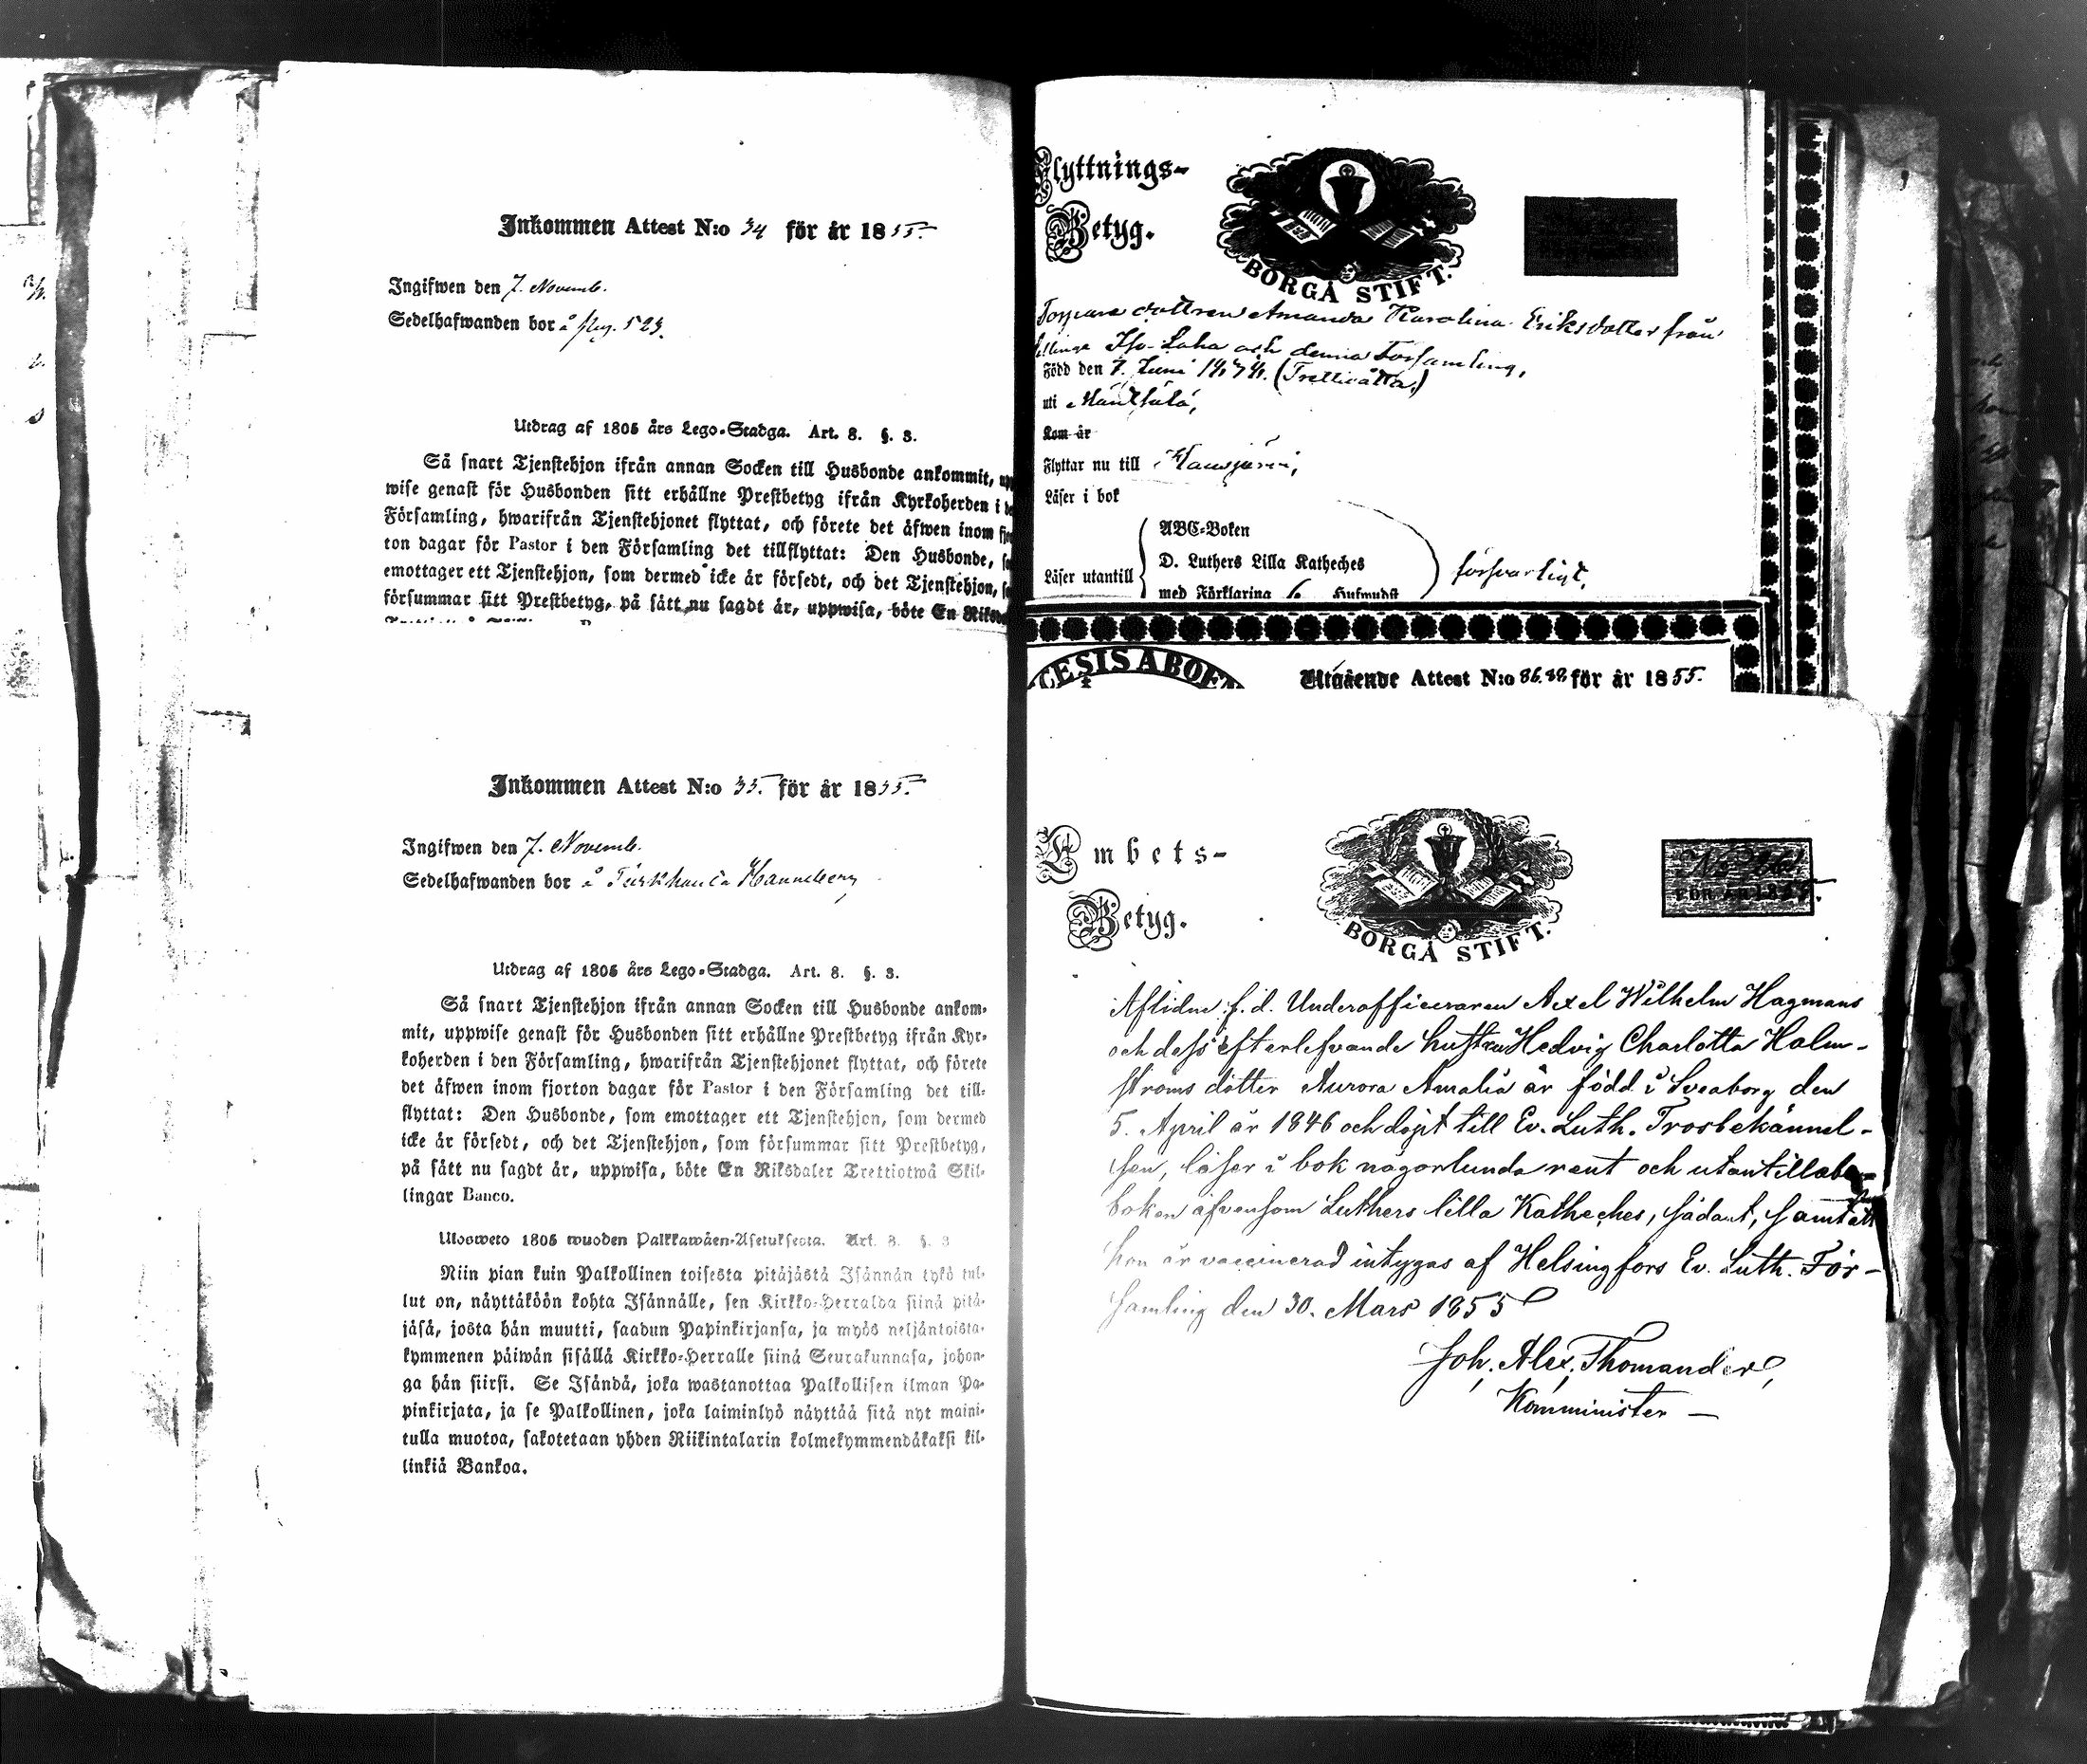 Inkommen Attest N:o 34 för år 1855.
Ingifwen den 7. Novemb.
Sedelhafwanden bor å
Utdrag af 1805 års Lego-Stadga. Art. 8. §. 3.
Så snart Tjenstehjon ifrån annan Socken till Husbonde ankommit, up
wise genast för Husbonden sitt erhållne Prestbetyg ifrån Kyrkoherden i de
Församling, hwarifrån Tjenstehjonet flyttat, och förete det äfwen inom fjor
ton dagar för Pastor i den Församling det tillflyttat: Den Husbonde, so
emottager ett Tjenstehjon, som dermed icke är försedt, och det Tjenstehjon, so
försummar sitt Prestbetyg, på sätt nu sagdt är, uppwisa, böte En Riksda
Inkommen Attest N:o 35. för år 1855.
Ingifwen den 7. Novemb.
Sedelhafwanden bor å
Utdrag af 1805 års Lego-Stadga. Art. 8. §. 3.
Så snart Tjenstehjon ifrån annan Socken till Husbonde ankom-
mit, uppwise genast för Husbonden sitt erhållne Prestbetyg ifrån Kyr-
koherden i den Församling, hwarifrån Tjenstehjonet flyttat, och förete
det äfwen inom fjorton dagar för Pastor i den Församling det till-
flyttat: Den Husbonde, som emottager ett Tjenstehjon, som dermed
icke är försedt, och det Tjenstehjon, som försummar sitt Prestbetyg,
på sätt nu sagdt är, uppwisa, böte En Riksdaler Trettiotwå Skil-
lingar Banco.
Ulosweto 1805 wuoden Palkkawäen-Asetuksesta. Art. 8. §. 3
Niin pian kuin Palkollinen toisesta pitäjästä Isännän tykö tul-
lut on, näyttäköön kohta Isännälle, sen Kirkko-Herralda siinä pitä-
jäsä, josta hän muutti, saadun Papinkirjansa, ja myös neljäntoista-
kymmenen päiwän sisällä Kirkko-Herralle siinä Seurakunnasa, johon-
ga hän siirsi. Se Isändä, joka wastanottaa Palkollisen ilman Pa-
pinkirjata, ja se Palkollinen, joka laiminlyö näyttää sitä nyt maini-
tulla muotoa, sakotetaan yhden Riikintalarin kolmekymmendäkaksi kil-
linkiä Bankoa.
Flyttnings-
Betyg.
BORGÅ STIFT.
Torpare dottren Amanda Karolina Eriksdotter från
och denna Församling,
Född den 7. Juni (Trettioåtta,)
uti Mäntsälä,
Kom år
Flyttar nu till Hausjärvi,
Läser i bok
Läser utantill
ABC-Boken
D. Luthers Lilla Katheches
med Förklaring Hufwudst
försvarligt.
CESIS ABOE
Utgående Attest N:o 86. för år 1855.
Embets-
Betyg.
BORGÅ STIFT.
FÖR ÅR 185
Aflidne f. d. Underofficeraren Axel Wilhelm Hagmans
och dess efterlefvande hustru Hedvig Charlotta Holm-
ströms dotter Aurora Amalia är född i Sveaborg den
5. April år 1846 och döpt till Ev. Luth. Trosbekännel-
sen, läser i bok någorlunda rent och utantill abc-
boken äfvensom Luthers lilla Katheches, sådant, samt att
hon är vaccinerad intygas af Helsingfors Ev. Luth. För-
samling den 30. Mars 1855
Joh. Alex. Thomander,
Komminister